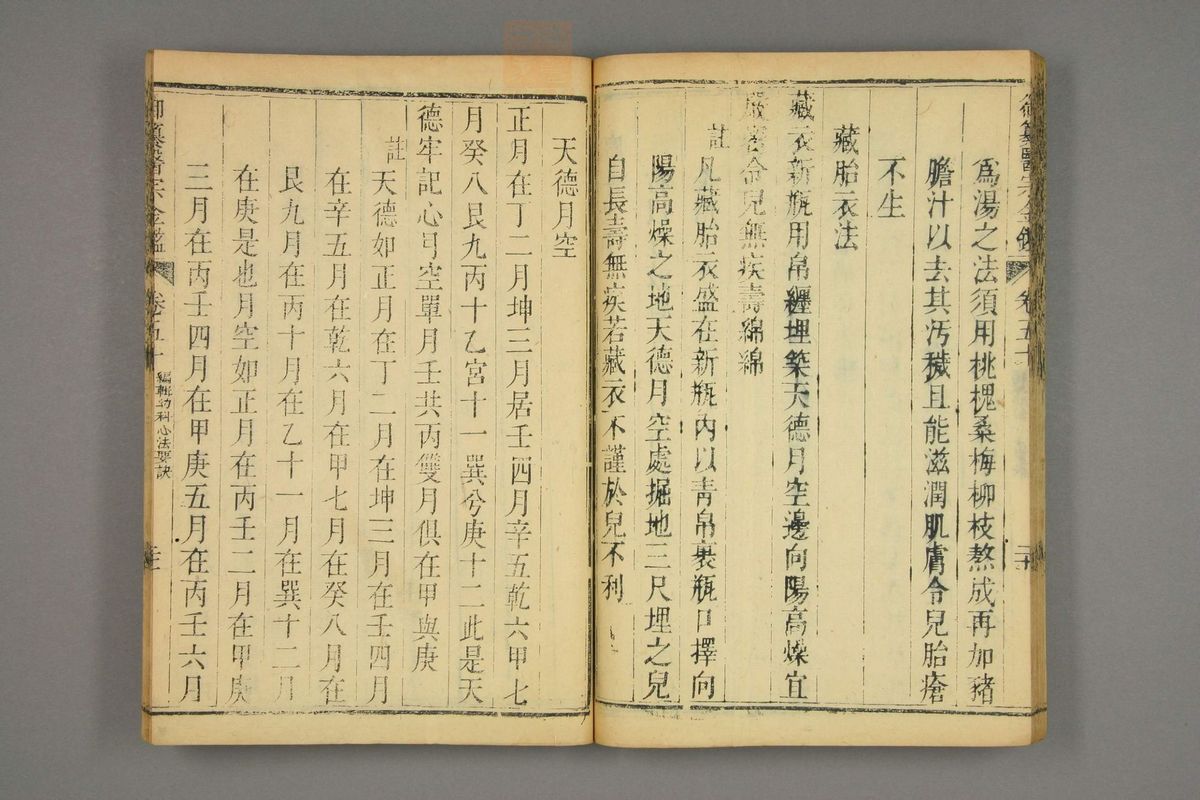 御纂醫宗金鑑 卷五十 二十
為湯之法須用桃槐桑梅柳枝熬成再加豬
膽汁以去其汚穢且能滋潤肌膚令兒胎瘡
不生
藏胎衣法
藏衣新瓶用帛纏埋築天德月空邊向陽高燥宜
嚴密令兒無疾壽綿綿
註凡藏胎衣盛在新瓶內以青帛裹瓶口擇向
陽高燥之地天德月空處掘地三尺埋之兒
自長壽無疾若藏衣不謹於兒不利
天德月空
正月在丁二月坤三月居壬四月辛五乾六甲七
月癸八艮九丙十乙宮十一巽兮庚十二此是天
德牢記心弓空單月壬共丙雙月俱在甲與庚
註天德如正月在丁二月在坤三月在壬四月
在辛五月在乾六月在甲七月在癸八月在
艮九月在丙十月在乙十一月在巽十二月
在庚是也月空如正月在丙壬二月在甲庚
三月在丙壬四月在甲庚五月在丙壬六月
御纂醫宗金鑑 卷五十 編輯幼科心法要訣